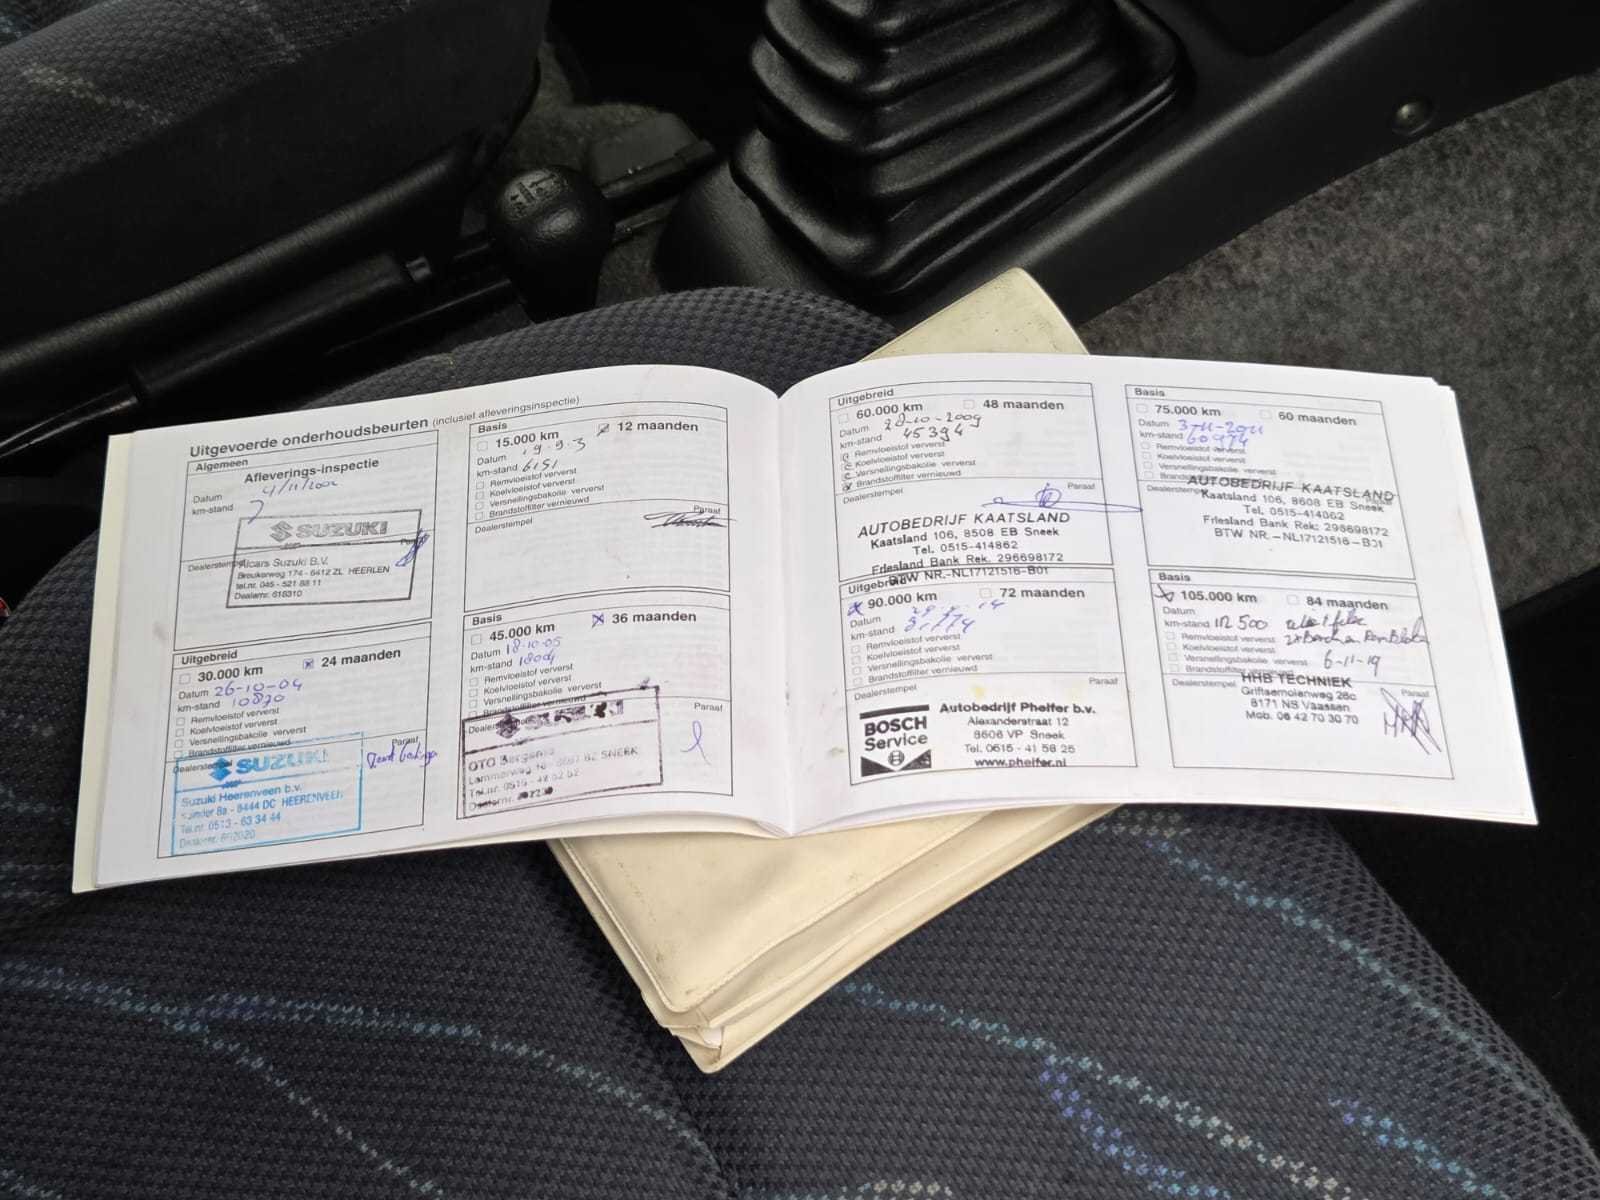 Uitgevoerde onderhoudsbeurten (inclusief afleveringsinspectie)
Algemeen
Afleverings-inspectie
Datum 4/11/2002
km-stand 7
Paraaf
Dealerstempel
SUZUKI
Alcars Suzuki B.V.
Breukerweg 174 - 6412 ZL HEERLEN
tel.nr. 045 - 521 88 11
Dealernr. 618310
Basis
15.000 km 12 maanden
Datum 19.9.3
km-stand 6151
Remvloeistof ververst
Koelvloeistof ververst
Versnellingsbakolie ververst
Brandstoffilter vernieuwd
Dealerstempel Paraaf
Uitgebreid
30.000 km 24 maanden
Datum 26-10-04
km-stand 10870
Remvloeistof ververst
Koelvloeistof ververst
Versnellingsbakolie ververst
Brandstoffilter vernieuwd
Dealerstempel Paraaf
SUZUKI
Suzuki Heerenveen b.v.
8a - 8444 DC HEERENVEEN
Tel.nr. 0513 - 63 34 44
Dealernr.
Basis
45.000 km 36 maanden
Datum 18-10-05
km-stand 18004
Remvloeistof ververst
Koelvloeistof ververst
Versnellingsbakolie ververst
Brandstoffilter vernieuwd
Dealerstempel Paraaf
OTO
SNEEK
Tel.nr. 0515 -
Dealernr.
Uitgebreid
60.000 km 48 maanden
Datum 28-10-2009
km-stand 45394
Remvloeistof ververst
Koelvloeistof ververst
Versnellingsbakolie ververst
Brandstoffilter vernieuwd
Dealerstempel Paraaf
AUTOBEDRIJF KAATSLAND
Kaatsland 106, 8608 EB Sneek
Tel. 0515-414862
Friesland Bank Rek. 296698172
BTW NR.-NL17121516-B01
Basis
75.000 km 60 maanden
Datum 3-11-2011
km-stand 60974
Remvloeistof ververst
Koelvloeistof ververst
Versnellingsbakolie ververst
Brandstoffilter vernieuwd
Dealerstempel Paraaf
AUTOBEDRIJF KAATSLAND
Kaatsland 106, 8608 EB Sneek
Tel. 0515-414862
Friesland Bank Rek: 296698172
BTW NR.-NL17121516-B01
Uitgebreid
90.000 km 72 maanden
Datum
km-stand
Remvloeistof ververst
Koelvloeistof ververst
Versnellingsbakolie ververst
Brandstoffilter vernieuwd
Dealerstempel Paraaf
BOSCH
Service
Autobedrijf Pheifer b.v.
Alexanderstraat 12
8606 VP Sneek
Tel. 0515 - 41 58 25
www.pheifer.nl
Basis
105.000 km 84 maanden
Datum
km-stand 112500
Remvloeistof ververst
Koelvloeistof ververst
Versnellingsbakolie ververst 6-11-19
Brandstoffilter vernieuwd
Dealerstempel Paraaf
HHB TECHNIEK
Griftsemolenweg 26c
8171 NS Vaassen
Mob. 06 42 70 30 70